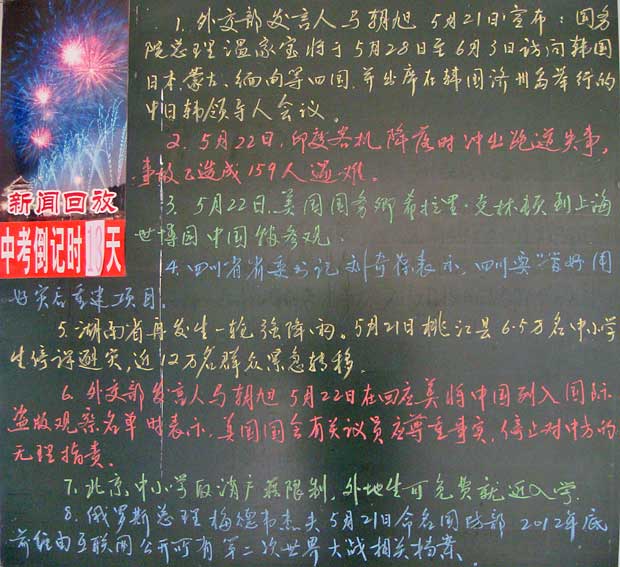 新闻回放
中考倒记时13天
1. 外交部发言人马朝旭 5月21日宣布：国务
院总理温家宝将于5月28日至6月3日访问韩国
日本、蒙古、缅甸等四国，并出席在韩国济州岛举行的
中日韩领导人会议。
2. 5月22日，印度客机降落时冲出跑道失事，
事故已造成159人遇难。
3. 5月22日，美国国务卿希拉里·克林顿到上海
世博园中国馆参观。
4. 四川省省委书记刘奇葆表示，四川要"省好用
好灾后重建项目。
5. 湖南省再发生一轮强降雨。5月21日桃江县6.5万名中小学
生停课避灾，近12万名群众紧急转移.
6. 外交部发言人马朝旭 5月22日在回应美将中国列入国际
盗版观察名单时表示，美国国会有关议员应尊重事实，停止对中方的
无理指责。
7. 北京中小学取消户籍限制，外地生可免费就近入学
8. 俄罗斯总理梅德韦杰夫5月21日命名国防部 2012年底
前经由互联网公开所有第二次世界大战相关档案.